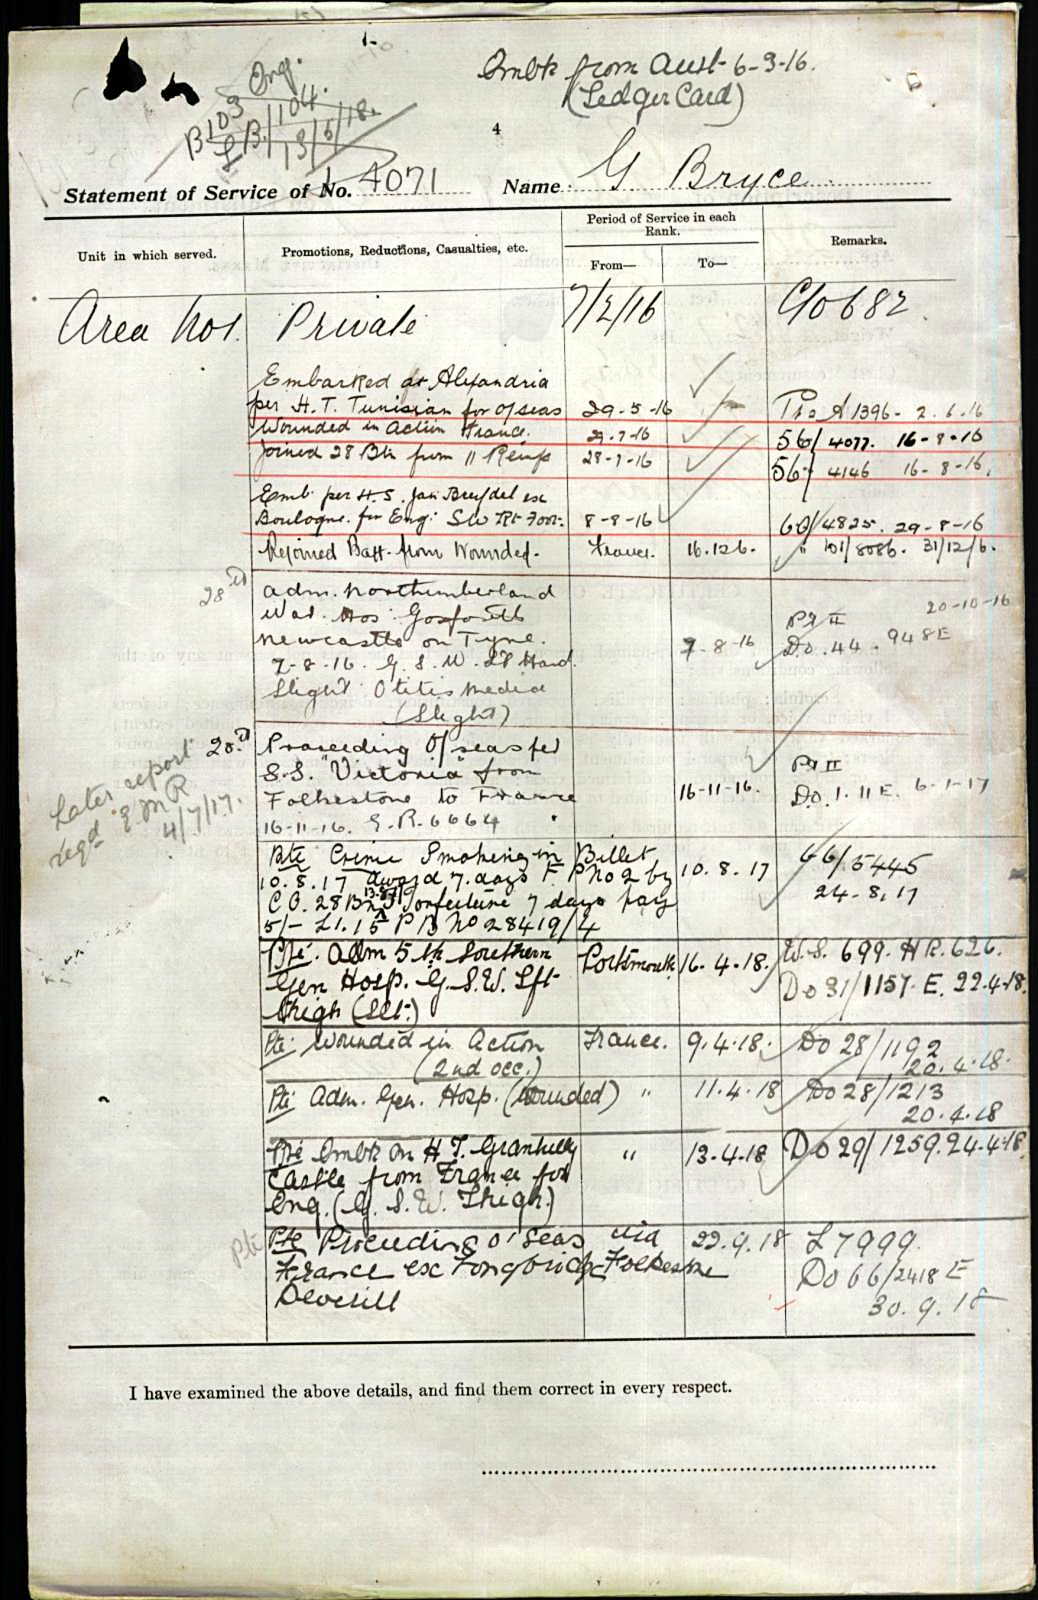 Embk from Aust 6-3-16.
(Ledger Card)
Orig.
B103
B/104.
13/5/18.
4
Statement of Service of No. 4071 Name G Bryce
Unit in which served.
Promotions, Reductions, Casualties, etc.
Period of Service in each Rank.
From—
To—
Remarks.
Area No 1. Private 7/2/16 C/O 682
Embarked at Alexandria
per H.T. Tunisian for O/seas 29-5-16 A 1396- 2.6.16
Wounded in Action France. 29-7-16 56/4077. 16-8-16
Joined 28 Btn from 11 Reinfs 28-7-16 56/4146 16-8-16.
Emb. per H.S. Jan Breydel ex
Boulogne. for Eng: S.W. Rt Foot. 8-8-16 60/4825. 29-8-16
Rejoined Batt. from Wounded. France. 16.12.6. " 101/8086. 31/12/6.
28th
Adm. Northumberland
War. Hos Gosforth
Newcastle on Tyne. 20-10-16
7-8-16. G.S.W. Lt Hand. 7-8-16 Pt II D.O. 44. 948E
Slight Otitis Media
(Slight)
28th
Proceeding O/seas per
S.S. "Victoria" from Pt II
Folkestone to France 16-11-16. D.O. 1. 11 E. 6-1-17
16-11-16. E.R. 6664
Later report
regd. E M R
4/7/17.
Pte Crime Smoking in Billet
10.8.17 Award 7. days F.P. No 2 by 10.8.17 66/5445
C.O. 28 Bn 13.8.17 Forfeiture 7 days pay 24-8.17
5/- £1.15 P B No 28419/4
Pte. Adm 5th Southern Portsmouth 16.4.18. W.S. 699. H R. 626.
Gen Hosp. G.S.W. Lft Do 31/1157. E. 22.4.18.
Thigh (Slt.)
Pte. Wounded in Action France. 9.4.18. Do 28/1192
(2nd occ.) 20.4.18.
Pte Adm. Gen. Hosp. (Wounded) " 11.4.18 Do 28/1213
20.4.18
Pte Embk on H.T. Grantully " 13.4.18 Do 29/1259. 24.4.18
Castle from France for
Eng. (G.S.W. Thigh.)
Pte
Pte Proceeding O'Seas via 22.9.18 L7999
France ex Longbridge Folkestone Do 66/2418 E
Deverill 30.9.18
I have examined the above details, and find them correct in every respect.